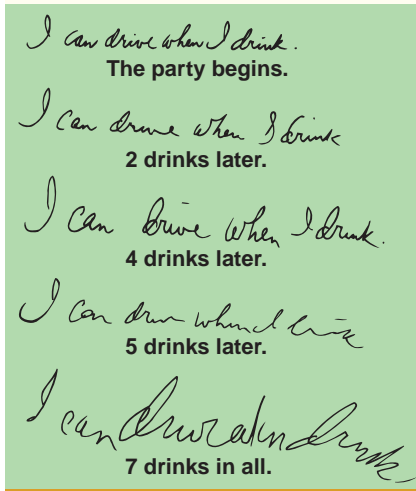 I can drive when I drink.
The party begins.
I can drive when I drink
2 drinks later.
I can drive when I drink.
4 drinks later.
I can drive when I drink
5 drinks later.
I can drive when drunk
7 drinks in all.